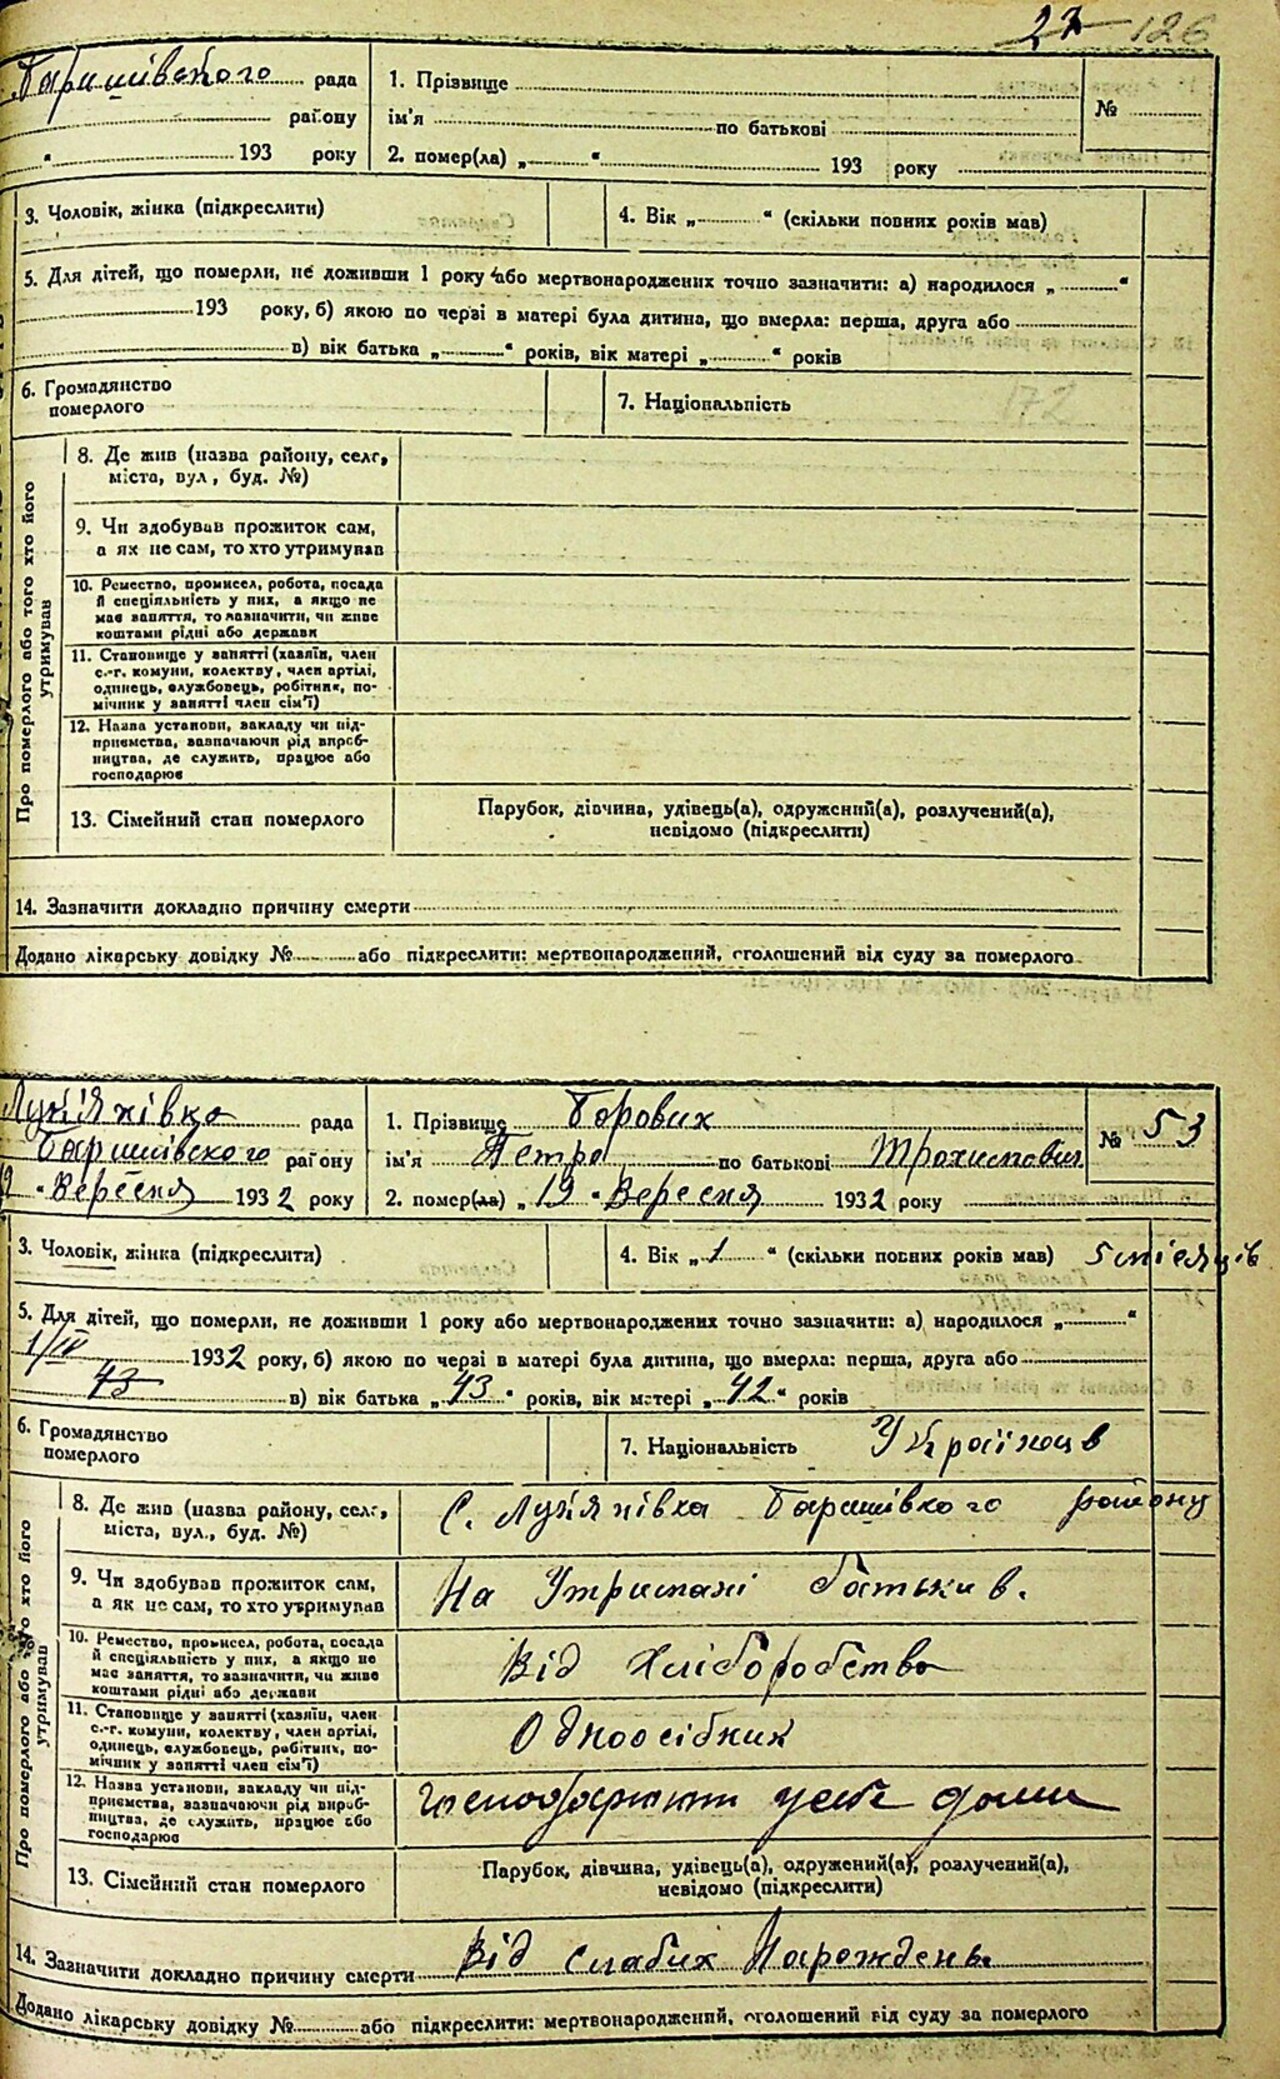 27 126
Баришівського рада
району
" 193 року
1. Прізвище
ім'я по батькові
2. помер(ла) „ " 193 року
№
3. Чоловік, жінка (підкреслити)
4. Вік „ " (скільки повних років мав)
5. Для дітей, що померли, не доживши 1 року або мертвонароджених точно зазначити: а) народилося „ "
193 року, б) якою по черзі в матері була дитина, що вмерла: перша, друга або
в) вік батька „ " років, вік матері „ " років
6. Громадянство
померлого
7. Національність
172
Про померлого або того хто його
утримував
8. Де жив (назва району, селг,
міста, вул, буд. №)
9. Чи здобував прожиток сам,
а як не сам, то хто утримував
10. Ремество, промисел, робота, посада
й спеціяльність у них, а якщо не
має заняття, то зазначити, чи живе
коштами рідні або держави
11. Становище у занятті (хазяїн, член
с.-г. комуни, колективу, член артілі,
одинець, службовець, робітник, по-
мічник у занятті член сім'ї)
12. Назва установи, закладу чи під-
приємства, зазначаючи рід вироб-
ництва, де служить, працює або
господарює
13. Сімейний стан померлого
Парубок, дівчина, удівець(а), одружений(а), розлучений(а),
невідомо (підкреслити)
14. Зазначити докладно причину смерти
Додано лікарську довідку № або підкреслити: мертвонароджений, оголошений від суду за померлого
Лукіянівка рада
Баришівского району
19 " Вересня 1932 року
1. Прізвище Боровик
ім'я Петро по батькові
2. помер(ла) „ 19 " Вересня 1932 року
№ 53
3. Чоловік, жінка (підкреслити)
4. Вік „ 1 " (скільки повних років мав) 5 місяців
5. Для дітей, що померли, не доживши 1 року або мертвонароджених точно зазначити: а) народилося „ "
1/IV 1932 року, б) якою по черзі в матері була дитина, що вмерла: перша, друга або
43 в) вік батька „ 43 " років, вік матері „ 42 " років
6. Громадянство
померлого
7. Національність Українців
Про померлого або того хто його
утримував
8. Де жив (назва району, селг,
міста, вул., буд. №)
С. Лукіянівка Баришівкого району
9. Чи здобував прожиток сам,
а як не сам, то хто утримував
На Утримані батьків.
10. Ремество, промисел, робота, посада
й спеціяльність у них, а якщо не
має заняття, то зазначити, чи живе
коштами рідні або держави
Від Хліборобства
11. Становище у занятті (хазяїн, член
с.-г. комуни, колективу, член артілі,
одинець, службовець, робітник, по-
мічник у занятті член сім'ї)
Одноосібник
12. Назва установи, закладу чи під-
приємства, зазначаючи рід вироб-
ництва, де служить, працює або
господарює
усебе дома
13. Сімейний стан померлого
Парубок, дівчина, удівець(а), одружений(а), розлучений(а),
невідомо (підкреслити)
14. Зазначити докладно причину смерти Від Слабих Нарождень
Додано лікарську довідку № або підкреслити: мертвонароджений, оголошений від суду за померлого